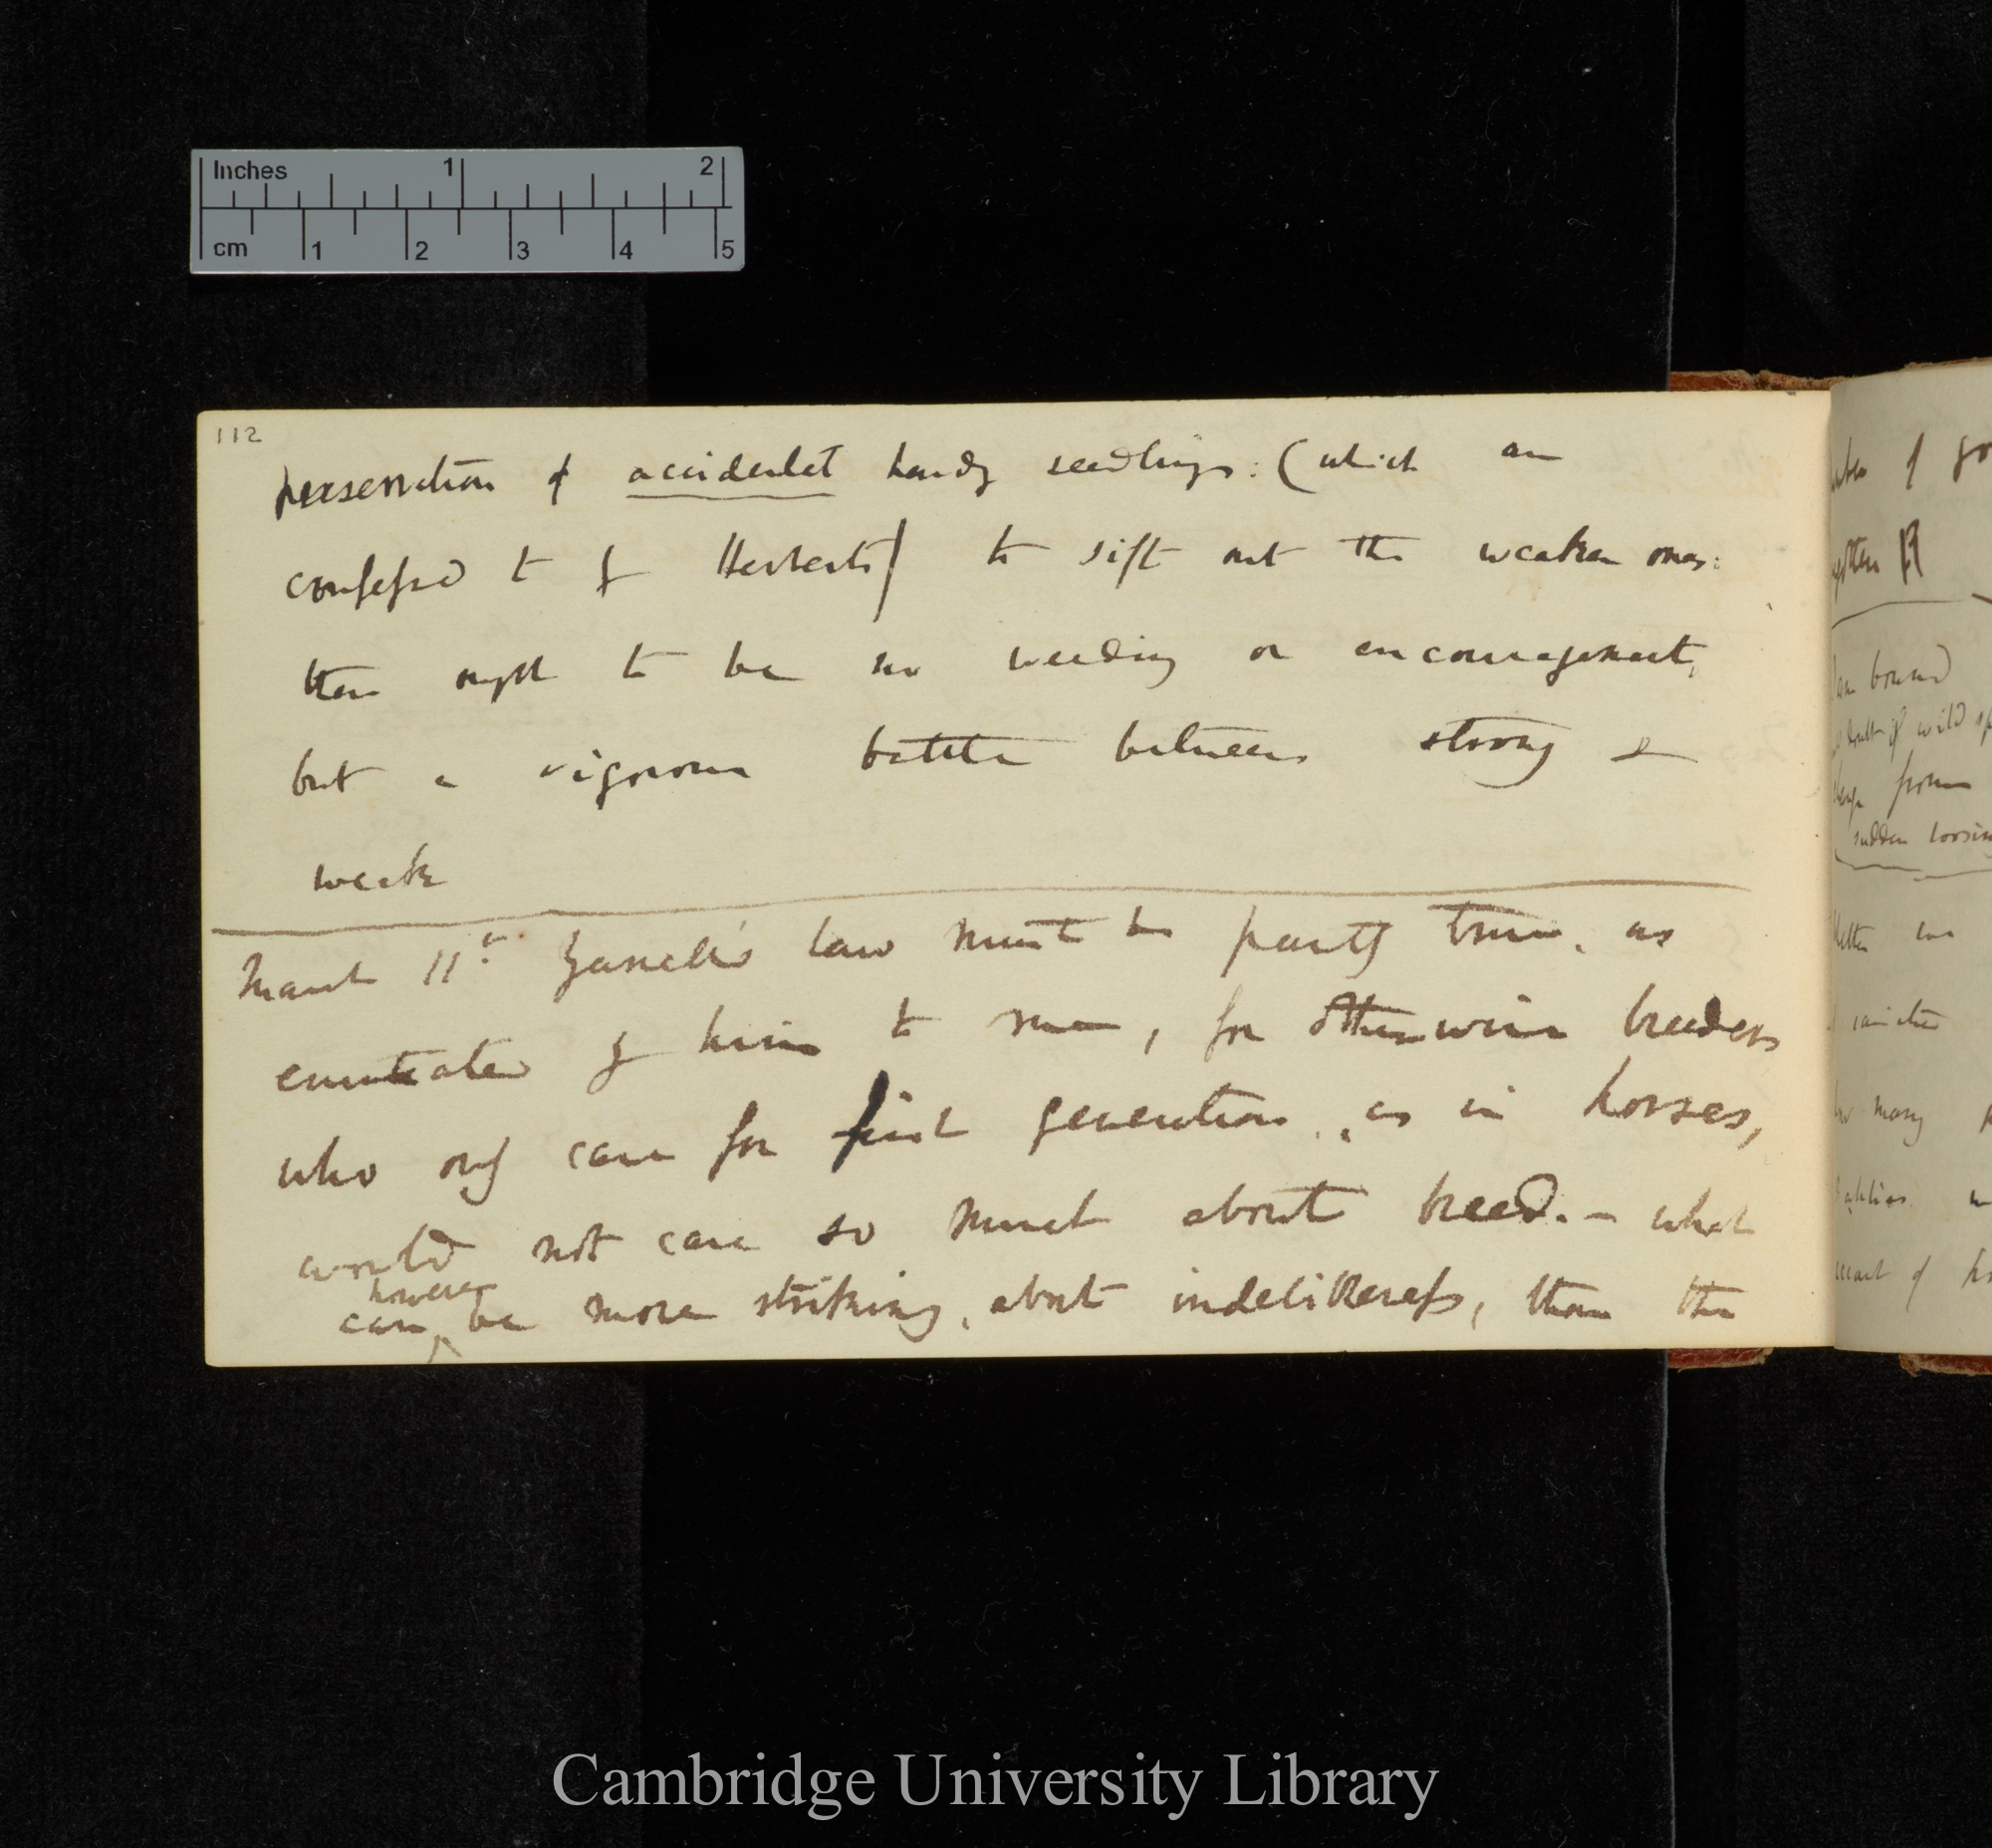 Inches 1 2
cm 1 2 3 4 5
112
perservation of accidental hardy seedlings: (which are
confessed to by Herbert) to sift out the weaker ones:
there ought to be no weeding or encouragement,
but a vigorous battle between strong &
weak
March 11th. Yarrell's law must be partly true, as
enuntiated by him to me, for otherwise breeders
who only care for first generation, as in horses,
would not care so much about breed. — what
however
can be more striking, about indelibleness, than the
of
from
sudden
many
of
Cambridge University Library